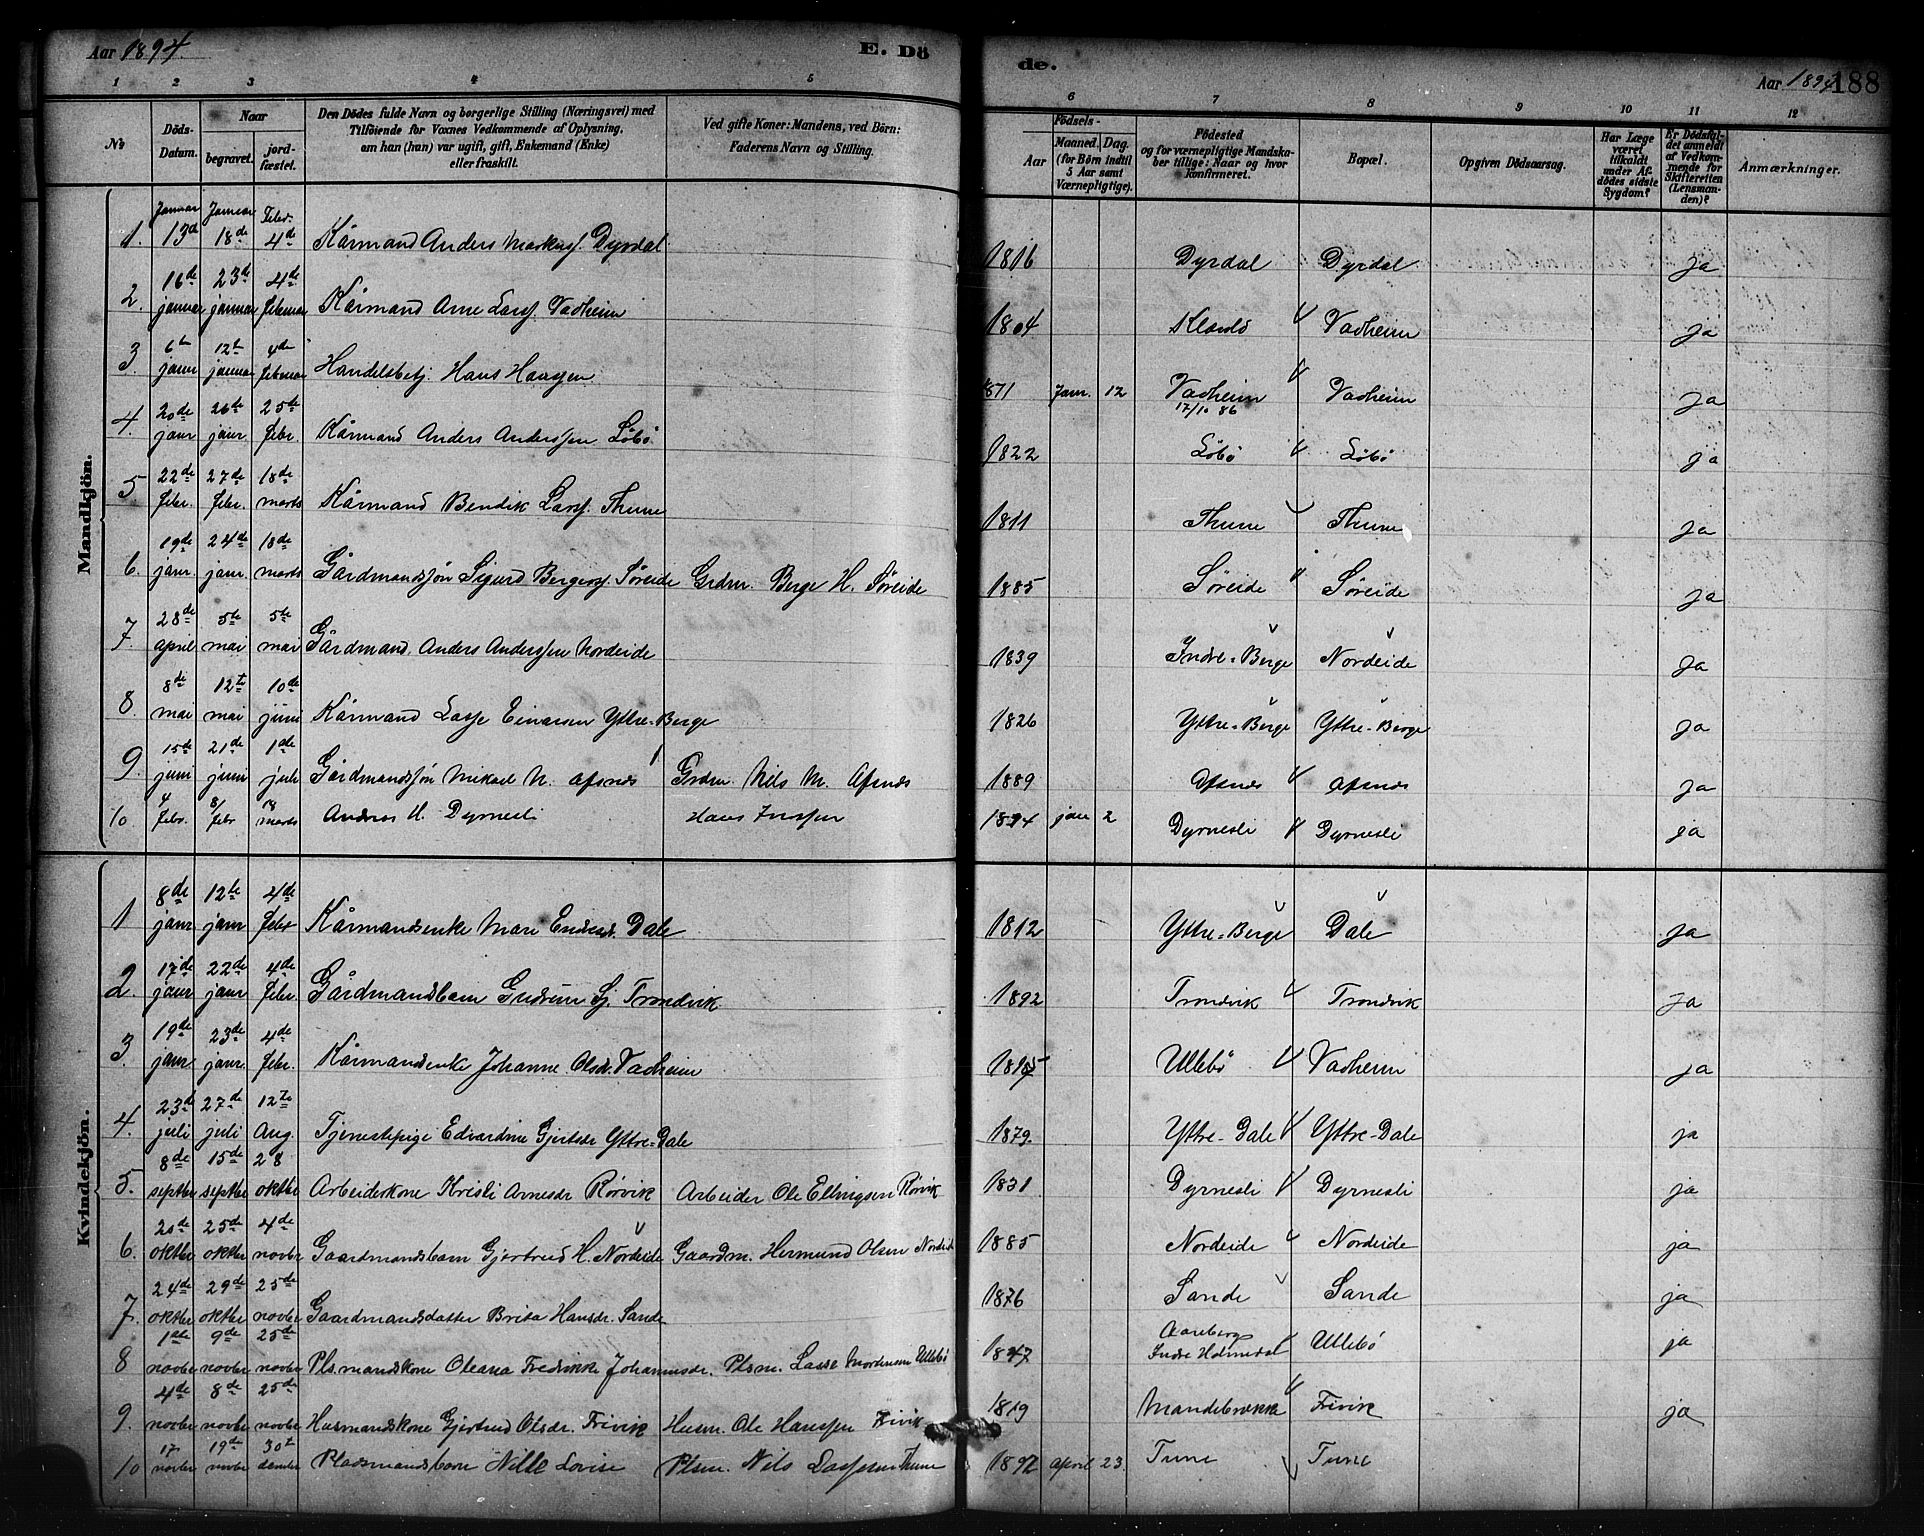 Aar 1894. E. Dö
de. Aar 1894 188
1 2 3 4 5
6 7 8 9 10 11 12
No Döds-Datum. Naar begravet. jordfæstet. Den Dödes fulde Navn og borgerlige Stilling (Næringsvei) med Tilföiende for Voxnes Vedkommende af Oplysning, om han (hun) var ugift, gift, Enkemand (Enke) eller fraskilt. Ved gifte Koner: Mandens, ved Börn: Faderens Navn og Stilling.
Födsels- Aar Maaned. Dag. (for Börn indtil 5 Aar samt Værnepligtige). Födested og for værnepligtige Mandskaber tillige: Naar og hvor Konfirmeret. Bopæl. Opgiven Dödsaarsag. Har Læge været tilkaldt under Afdödes sidste Sygdom? Er Dödsfaldet anmeldt af Vedkommende for Skifteretten (Lensmanden)? Anmærkninger.
Mandkjön.
1. Januar 13d Januar 18de Febr. 4de Kårmand Anders Markuss. Dyrdal 1816 Dyrdal Dyrdal ja
2. 16de januar 23de januar 4de februar Kårmand Arne Larss. Vadheim 1804 Vadheim ja
3 6te janr 12te januar 4de februar Handelsbetj. Hans Haasen 1871 Janr. 12 Vadheim 17/10 86 Vadheim ja
4. 20de janr 26de janr. 25de febr. Kårmand Anders Anderssen Löbö 1822 Löbö Löbö ja
5 22de febr. 27de febr. 18de marts Kårmand Bendik Larss. Thune 1811 Thune Thune ja
6. 19de janr. 24de janr. 18de marts Gårdmandssön Sigurd Bergess. Söreide Grdm. Berge H. Söreide 1885 Söreide Söreide ja
7. 28de april 5te mai 5te mai Gårdmand Anders Anderssen Nordeide 1839 Indre-Berge Nordeide ja
8. 8de mai 12te mai 10de juni Kårmand Lasse Einarsen Yttre-Berge 1826 Yttre-Berge Yttre-Berge ja
9. 15de juni 21de juni 1ste juli Gårdmandssön Mikael N. Afsnæs Grdm. Nils M. Afsnæs 1889 Afsnæs Afsnæs ja
10. 4 febr. 8/ febr 18 marts Andreas H. Dyrnesli Hans Jenssen 1894 jan 2 Dyrnesli Dyrnesli ja
Kvindekjön.
1 8de janr 12te janr 4de febr Kårmandsenke Mari Endresd. Dale 1812 Yttre-Berge Dale ja
2. 17de janr 22de janr 4de febr. Gårdmandsbarn Gudrun Sj. Trondvik 1892 Trondvik Trondvik ja
3 19de janr. 23de janr. 4de febr. Kårmandsenke Johanne Olsdr. Vadheim Ullebö Vadheim ja
4. 23de juli 27de juli 12te Aug. Tjenestepige Edvardine Gjertsdr Yttre-Dale 1879. Yttre-Dale Yttre-Dale ja
5. 8de septbr 15de septbr 28 oktbr Arbeiderkone Kristi Arnesdr Rörvik Arbeider Ole Ellingsen Rörvik 1831 Dyrnesli Dyrnesli ja
6. 20de oktbr 25de oktbr 4de novbr Gaardmandsbarn Gjertrud H. Nordeide Gaardm. Hermund Olsen Nordeide 1885 Nordeide Nordeide ja
7. 24de oktbr 29de oktbr 25de novbr Gaardmandsdatter Brita Hansdr. Sande 1876 Sande Sande ja
8 1ste novbr 9de novbr 25de novbr Plsmandskone Oleana Fredrikke Johannesdr. Plsm. Lasse Mortensen Ullebö 1847 Aareberg Indre Holmedal Ullebö ja
9. 4de novbr 8de novbr 25de novbr Husmandskone Gjertrud Olsdr. Frivik Husm. Ole Hanssen Frivik 1819 Mandebrække Frivik ja
10 17 novbr 19te novbr 30te Pladsmandsbarn Nille Lovise Plsm. Nils Lassesen Thune 1892 April 23. Tune Tune